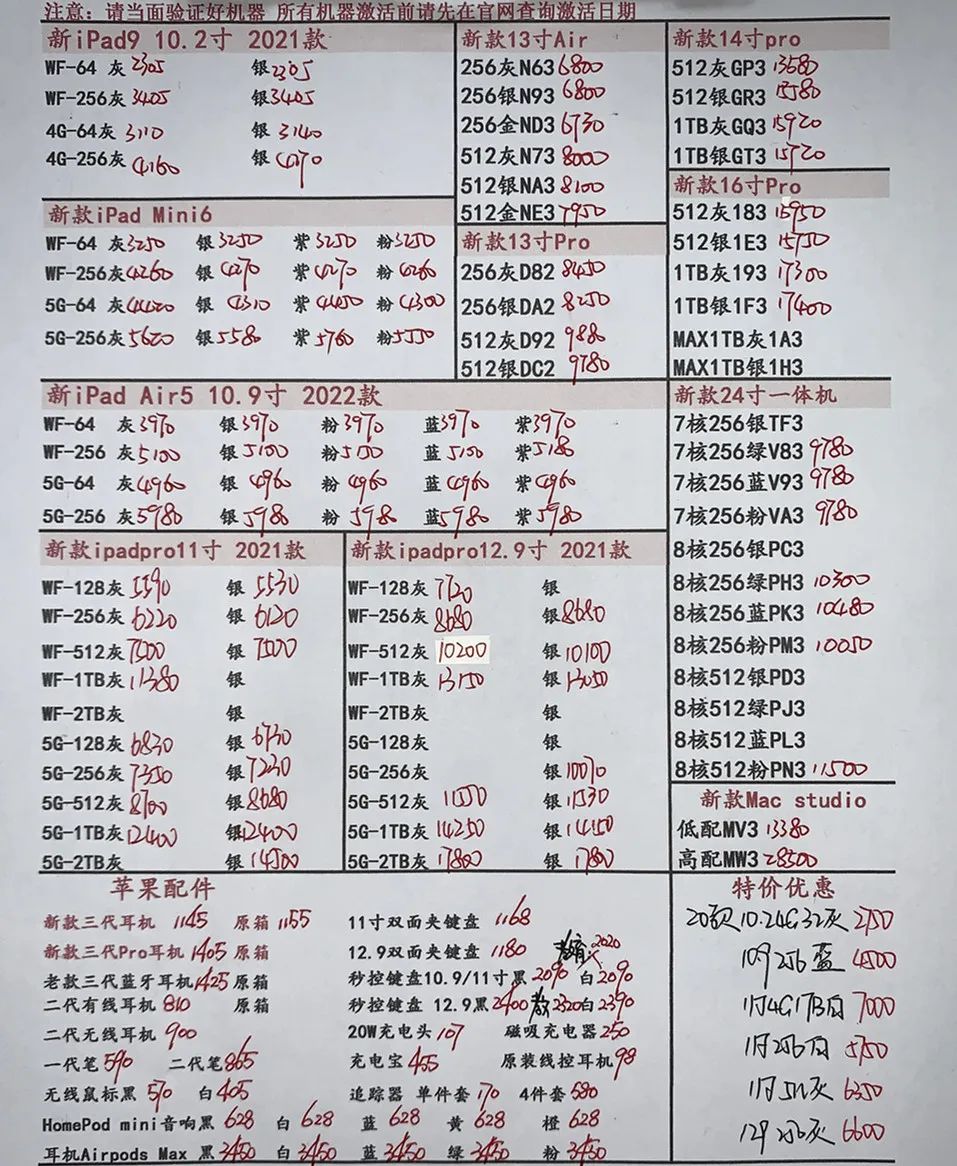 注意: 请当面验证好机器 所有机器激活前请先在官网查询激活日期
新iPad9 10.2寸 2021款
WF-64 灰2305 银2305
WF-256灰3405 银3405
4G-64灰 3110 银 3140
4G-256灰 4160 银 4270
新款iPad Mini6
WF-64 灰3250 银3250 紫3250 粉3250
WF-256灰4260 银4270 紫4270 粉4260
5G-64 灰4420 银4310 紫4450 粉4300
5G-256灰5620 银5580 紫5760 粉5550
新款13寸Air
256灰N63 6800
256银N93 6800
256金ND3 6730
512灰N73 8000
512银NA3 8100
512金NE3 7950
新款13寸Pro
256灰D82 8450
256银DA2 8250
512灰D92 9880
512银DC2 9780
新款14寸pro
512灰GP3 13680
512银GR3
1TB灰GQ3 15920
1TB银GT3
新款16寸Pro
512灰183 15950
512银1E3 15750
1TB灰193 17300
1TB银1F3 17400
MAX1TB灰1A3
MAX1TB银1H3
新iPad Air5 10.9寸 2022款
WF-64 灰3970 银3970 粉3970 蓝3970 紫3970
WF-256 灰5100 银5100 粉5150 蓝5150 紫5180
5G-64 灰4960 银4960 粉4960 蓝4960 紫4960
5G-256 灰5980 银5980 粉5980 蓝5980 紫5980
新款24寸一体机
7核256银TF3
7核256绿V83 9780
7核256蓝V93 9780
7核256粉VA3 9780
8核256银PC3
8核256绿PH3 10300
8核256蓝PK3 10480
8核256粉PM3 10050
8核512银PD3
8核512绿PJ3
8核512蓝PL3
8核512粉PN3 11500
新款ipadpro11寸 2021款
WF-128灰 5590 银 5530
WF-256灰 6220 银 6120
WF-512灰 7500 银 7500
WF-1TB灰 11380 银
WF-2TB灰 银
5G-128灰 6830 银 6730
5G-256灰 7350 银 7230
5G-512灰 8700 银8680
5G-1TB灰12400 银12400
5G-2TB灰 银14500
新款ipadpro12.9寸 2021款
WF-128灰 7720 银
WF-256灰 8680 银8680
WF-512灰 10200 银10100
WF-1TB灰 13150 银13050
WF-2TB灰 银
5G-128灰 银
5G-256灰 银10070
5G-512灰 11550 银11530
5G-1TB灰 14250 银14150
5G-2TB灰 17800 银 17800
新款Mac studio
低配MV3 13380
高配MW3 28500
苹果配件
新款三代耳机 1145 原箱 1155 11寸双面夹键盘 1168
新款三代Pro耳机 1405 原箱 12.9双面夹键盘 1180 2020
老款三代蓝牙耳机1425 原箱 秒控键盘10.9/11寸黑 2090 白2090
二代有线耳机 810 原箱 秒控键盘 12.9黑2400 2320白2390
二代无线耳机 900 20W充电头 107 磁吸充电器250
一代笔590 二代笔865 充电宝 455 原装线控耳机98
无线鼠标黑 570 白405 追踪器 单件套 170 4件套 580
HomePod mini音响黑 628 白 628 蓝 628 黄 628 橙 628
耳机Airpods Max 黑3450 白3450 蓝3450 绿3450 粉 3450
特价优惠
20款10.2 4G 32灰 2750
10.9 256 蓝 4500
11寸4G 1TB白 7000
11寸256白 5750
11寸512灰 6350
12.9 256灰 6600